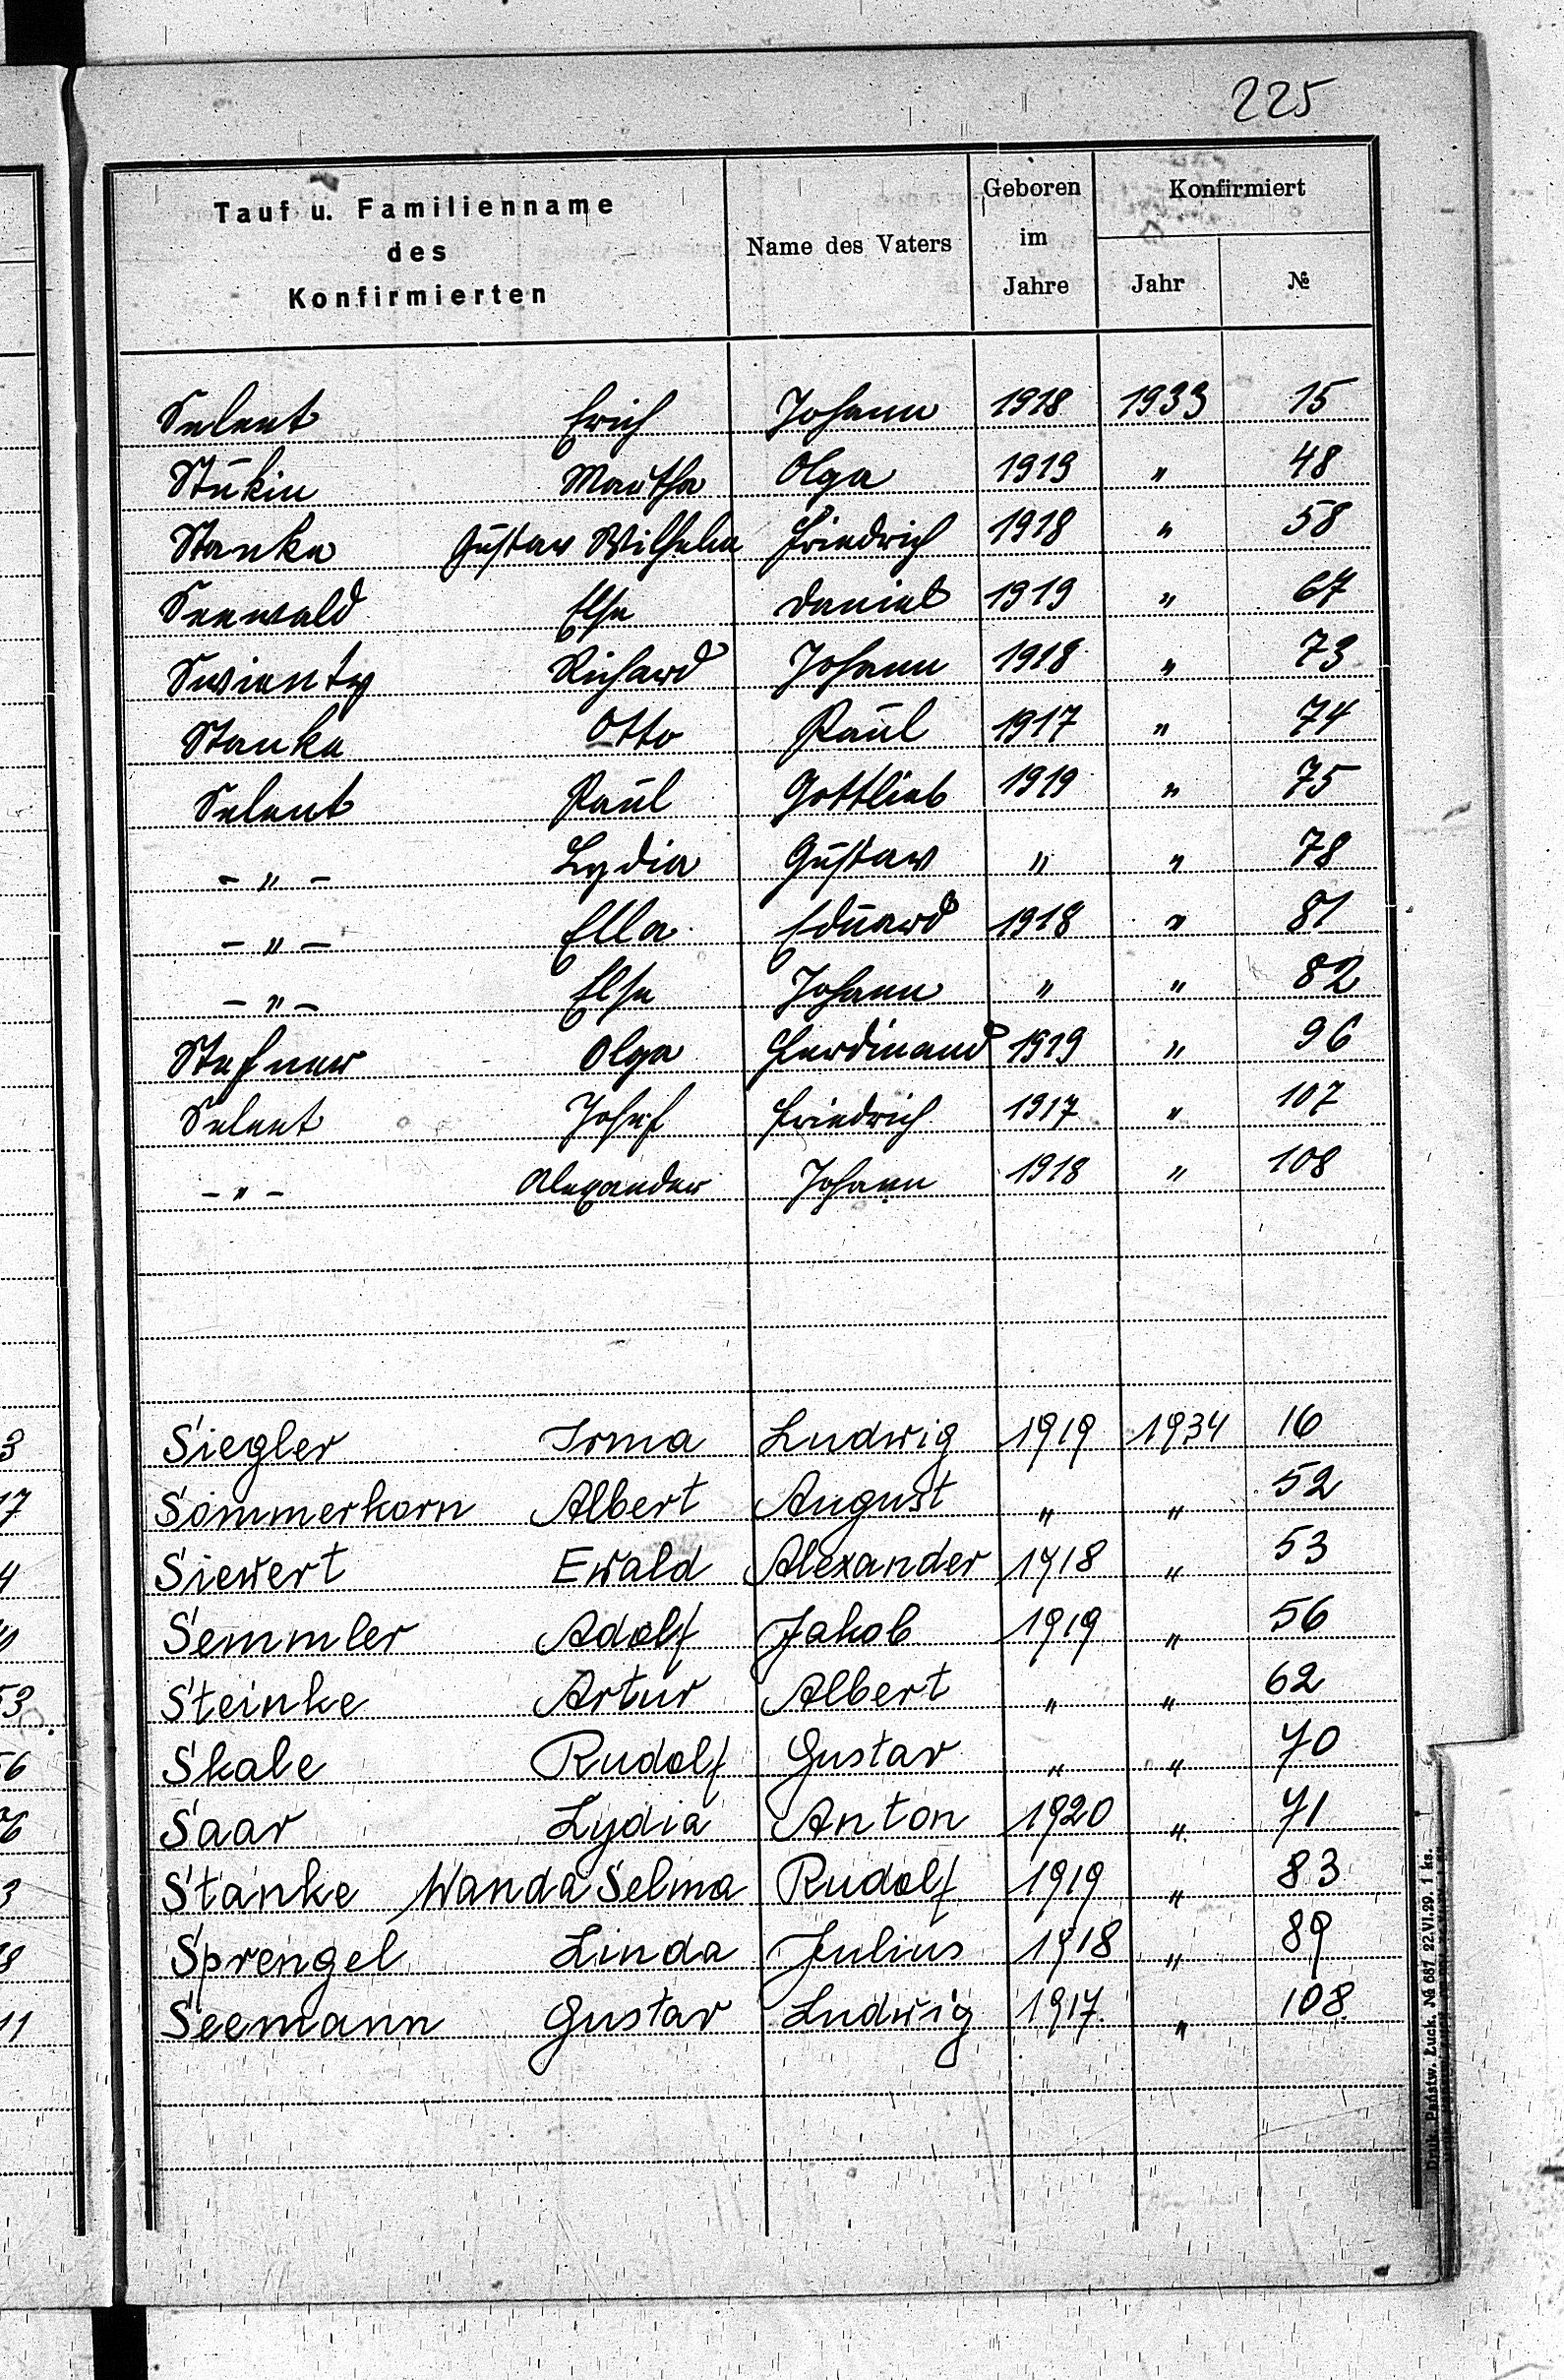 225
Tauf u. Familienname des Konfirmierten | Name des Vaters | Geboren im Jahre | Konfirmiert Jahr | №
Selent Erich Johann 1918 1933 15
Stükin Martha Olga 1919 " 48
Stanke Gustav Wilhelm Friedrich 1918 " 58
Seewald Else Daniel 1919 " 67
Swienty Richard Johann 1918 " 73
Stanke Otto Paul 1917 " 74
Selent Paul Gottlieb 1919 " 75
- " - Lydia Gustav " " 78
- " - Ella Eduard 1918 " 81
- " - Else Johann " " 82
Stefner Olga Ferdinand 1919 " 96
Selent Josef Friedrich 1917 " 107
- " - Alexander Johann 1918 " 108
Siegler Irma Ludwig 1919 1934 16
Sommerkorn Albert August " " 52
Siewert Ewald Alexander 1918 " 53
Semmler Adolf Jakob 1919 " 56
Steinke Artur Albert " " 62
Skale Rudolf Gustav " " 70
Saar Lydia Anton 1920 " 71
Stanke Wanda Selma Rudolf 1919 " 83
Sprengel Linda Julius 1918 " 89
Seemann Gustav Ludwig 1917. " 108.
Druk. Państw. Łuck. № 687 22.VI.29. 1 ks.